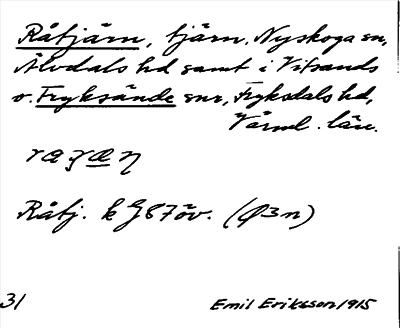 Råtjärn, tjärn, Nyskoga sn,
Älvdals hd samt i Vitsands
o. Fryksände snr, Fryksdals hd,
Värml. län.
Råtj. k G 87 öv. (Ø3n)
31 Emil Eriksson 1915